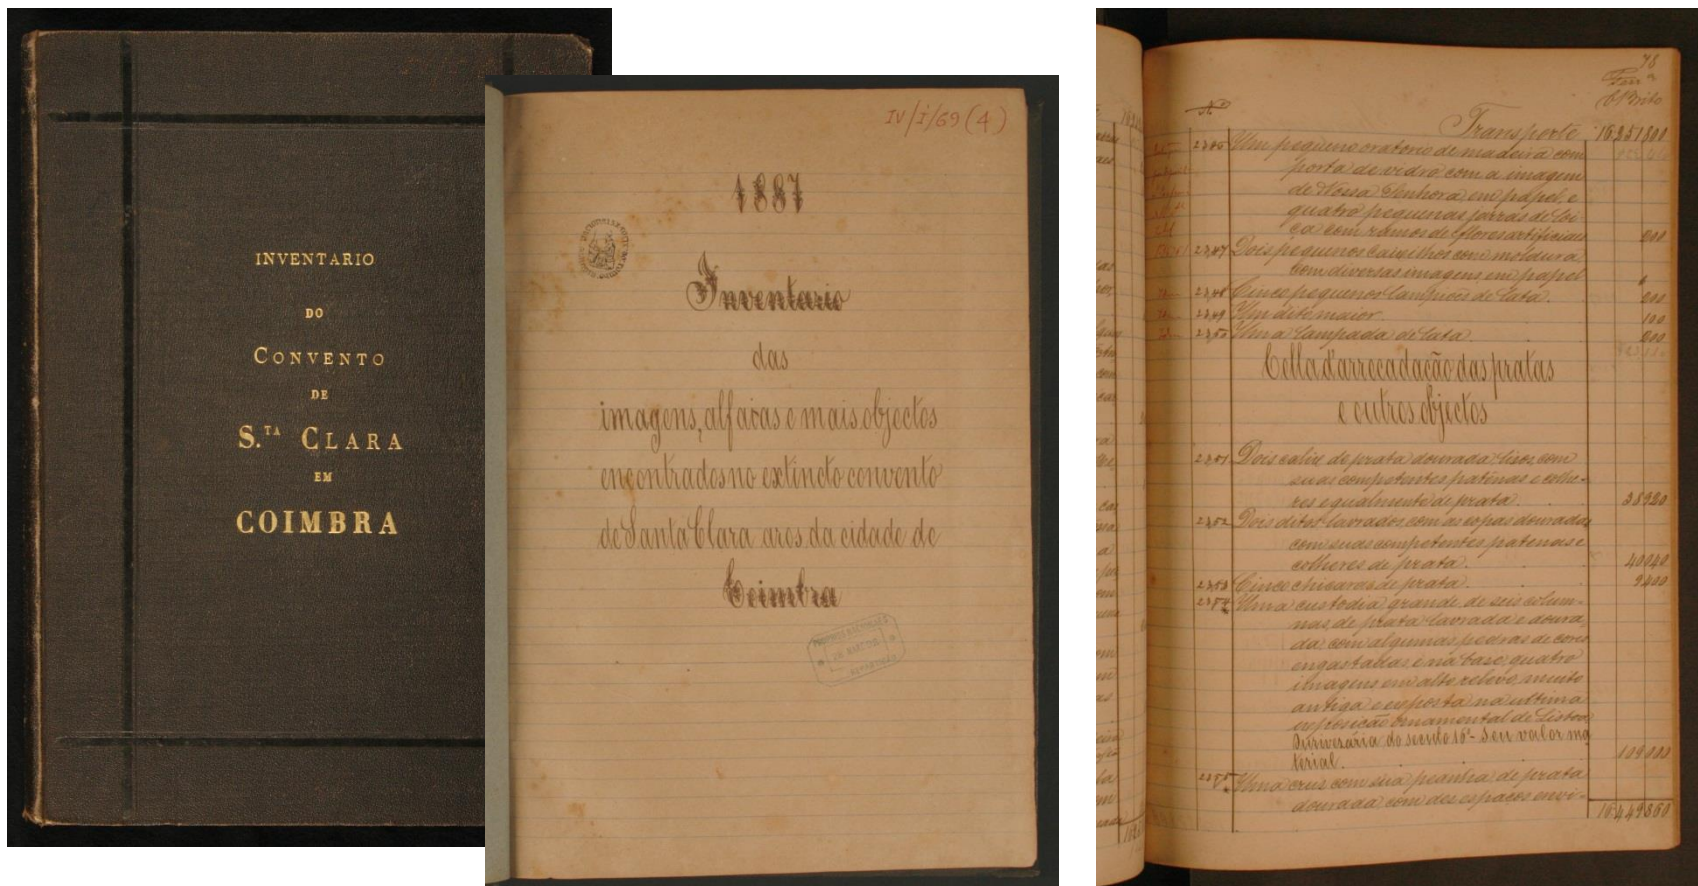 INVENTARIO
DO
CONVENTO
DE
S.TA CLARA
EM
COIMBRA
IV/I/69 (4)
1887
Inventario
das
imagens, alfaias e mais objectos
encontrados no extincto convento
de Santa Clara aros da cidade de
Coimbra
78
Nº
Transporte 16.251.800
Um pequeno oratorio de madeira com
porta de vidro, com a imagem
de Nossa Senhora em papel, e
quatro pequenas jarras de loi-
ça com ramos de flores artificiaes
2347 Dois pequenos caixilhos com moldura
com diversas imagens em papel
2348 Cinco pequenos lampiões de lata 200
2349 Um dito maior 100
2350 Uma lampada de lata
Cella d'arrecadação das pratas
e outros objectos
2351 Dois calix de prata dourada, lisos, com
suas competentes patenas e colhe-
res egualmente de prata. 38920
2352 Dois ditos lavrados com as copas douradas
com suas competentes patenas e
colheres de prata. 40040
2353 Cinco chicaras de prata. 9.400
2354 Uma custodia grande, de seis colum-
nas, de prata lavrada e doura-
da com algumas pedras de cores
engastadas, e na base quatro
imagens em alto relevo, muito
antiga e exposta na ultima
exposição ornamental de Lisboa
Ourivesaria do seculo 16º - Seu valor ma
terial. 109.000
2355 Uma cruz com sua peanha de prata
dourada com dez espaços envi-
16.449.360